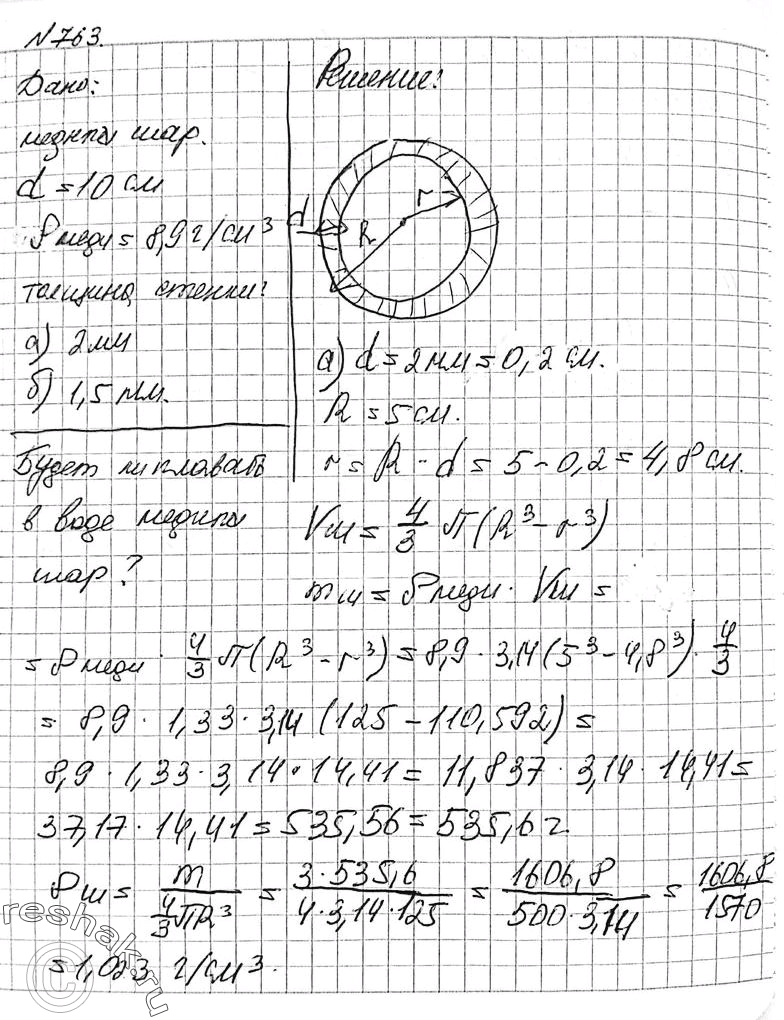 №763.
Дано:
медный шар.
d = 10 см
ρ меди = 8,9 г/см³
толщина стенки:
а) 2 мм
б) 1,5 мм.
Будет ли плавать
в воде медный
шар?
Решение:
d
R
r
а) d = 2 мм = 0,2 см.
R = 5 см.
r = R - d = 5 - 0,2 = 4,8 см.
Vш = 4/3 π(R³ - r³)
mш = ρ меди · Vш =
= ρ меди · 4/3 π(R³ - r³) = 8,9 · 3,14(5³ - 4,8³) · 4/3
= 8,9 · 1,33 · 3,14 (125 - 110,592) =
8,9 · 1,33 · 3,14 · 14,41 = 11,837 · 3,14 · 14,41 =
37,17 · 14,41 = 535,56 = 535,6 г.
ρш = m / (4/3 πR³) = 3·535,6 / 4·3,14·125 = 1606,8 / 500·3,14 = 1606,8 / 1570
= 1,023 г/см³.
© reshak.ru